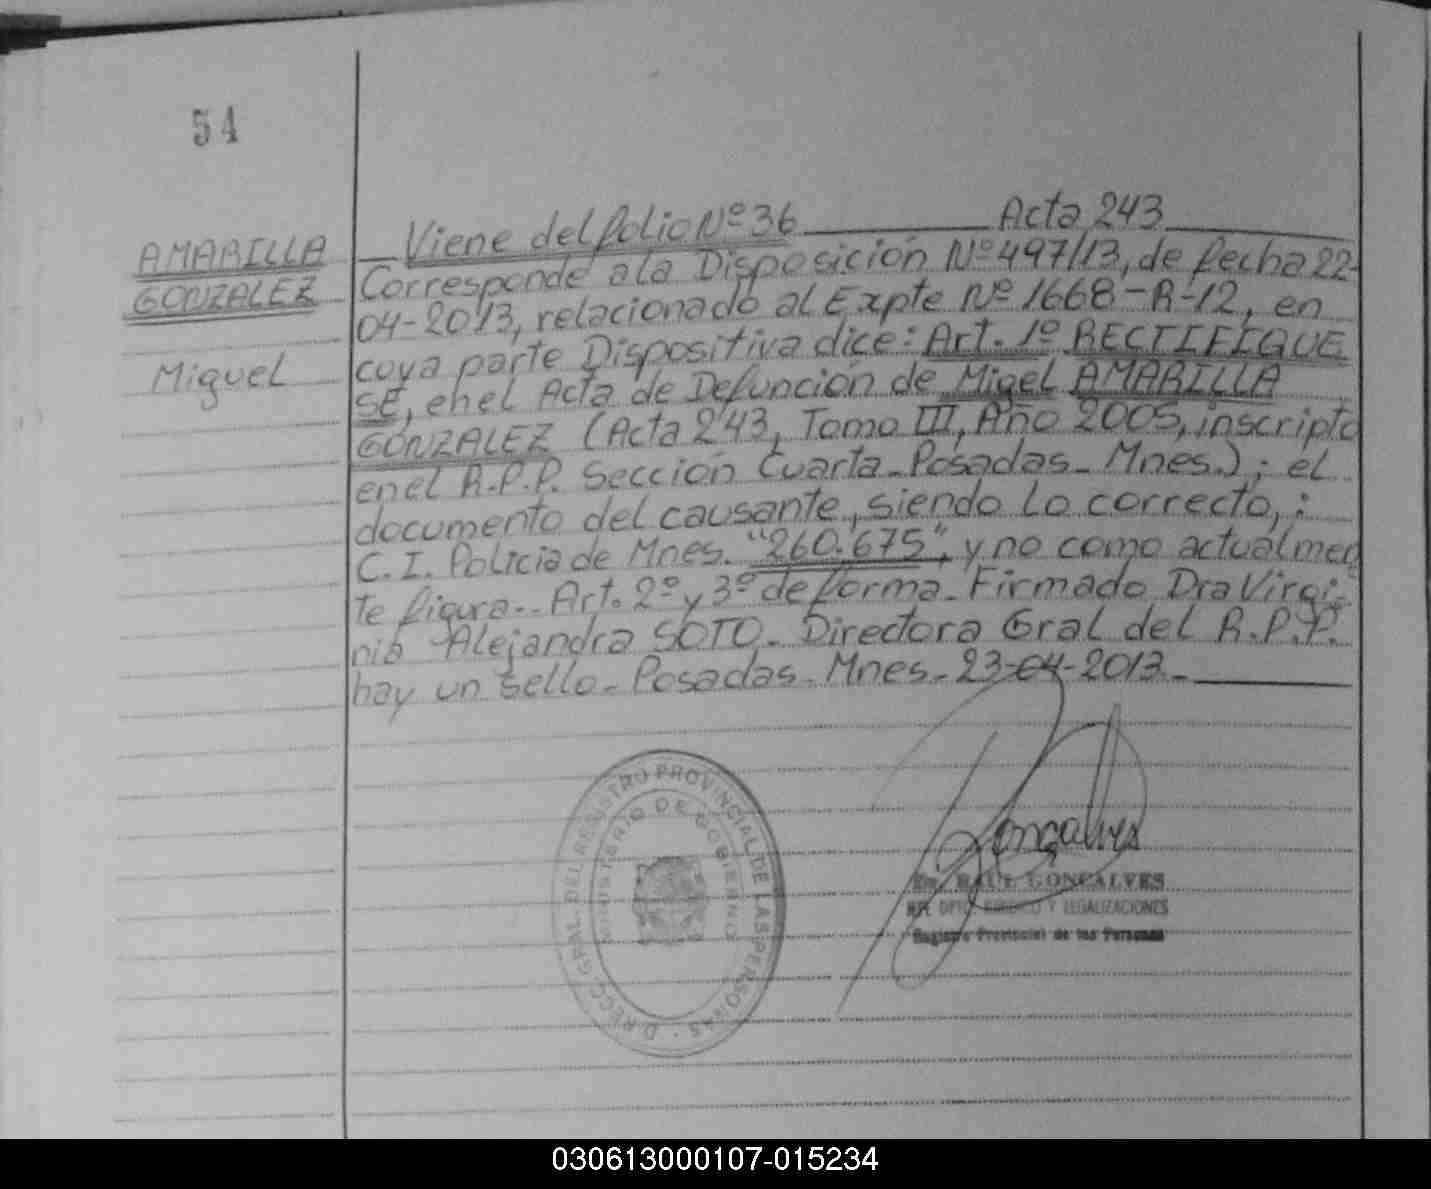 54
AMARILLA
GONZALEZ
Miguel
Viene del folio Nº 36 Acta 243
Corresponde a la Disposición Nº 497/13, de fecha 22-
04-2013, relacionado al Expte Nº 1668-R-12, en
cuya parte Dispositiva dice: Art. 1º RECTIFIQUE
SE, en el Acta de Defunción de Migel AMARILLA
GONZALEZ (Acta 243, Tomo III, Año 2005, inscripta
en el R.P.P. Sección Cuarta-Posadas-Mnes.); el
documento del causante, siendo lo correcto,:
C.I. Policia de Mnes. "260.675", y no como actualmen
te figura.- Art. 2º y 3º de forma-Firmado Dra Virgi-
nia Alejandra SOTO-Directora Gral del R.P.P.
hay un sello-Posadas-Mnes-23-04-2013.-
DIRECC. GRAL. DEL REGISTRO PROVINCIAL DE LAS PERSONAS
MINISTERIO DE GOBIERNO
Goncalves
Dr. RAUL GONCALVES
DPTO. JURIDICO Y LEGALIZACIONES
Registro Provincial de las Personas
030613000107-015234